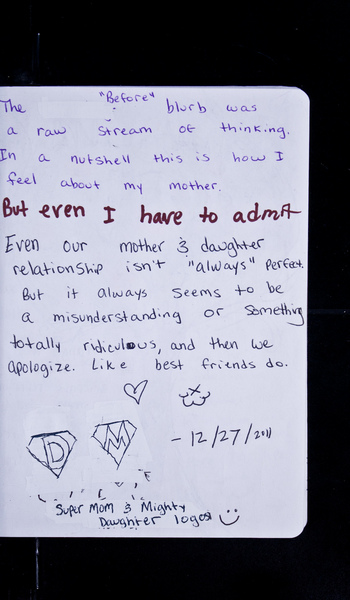 The "Before" blurb was
a raw stream of thinking.
In a nutshell this is how I
feel about my mother.
But even I have to admit
Even our mother & daughter
relationship isn't "always" perfect.
But it always seems to be
a misunderstanding or something
totally ridiculous, and then we
apologize. Like best friends do.
D M - 12/27/2011
Super Mom & Mighty
Daughter logos